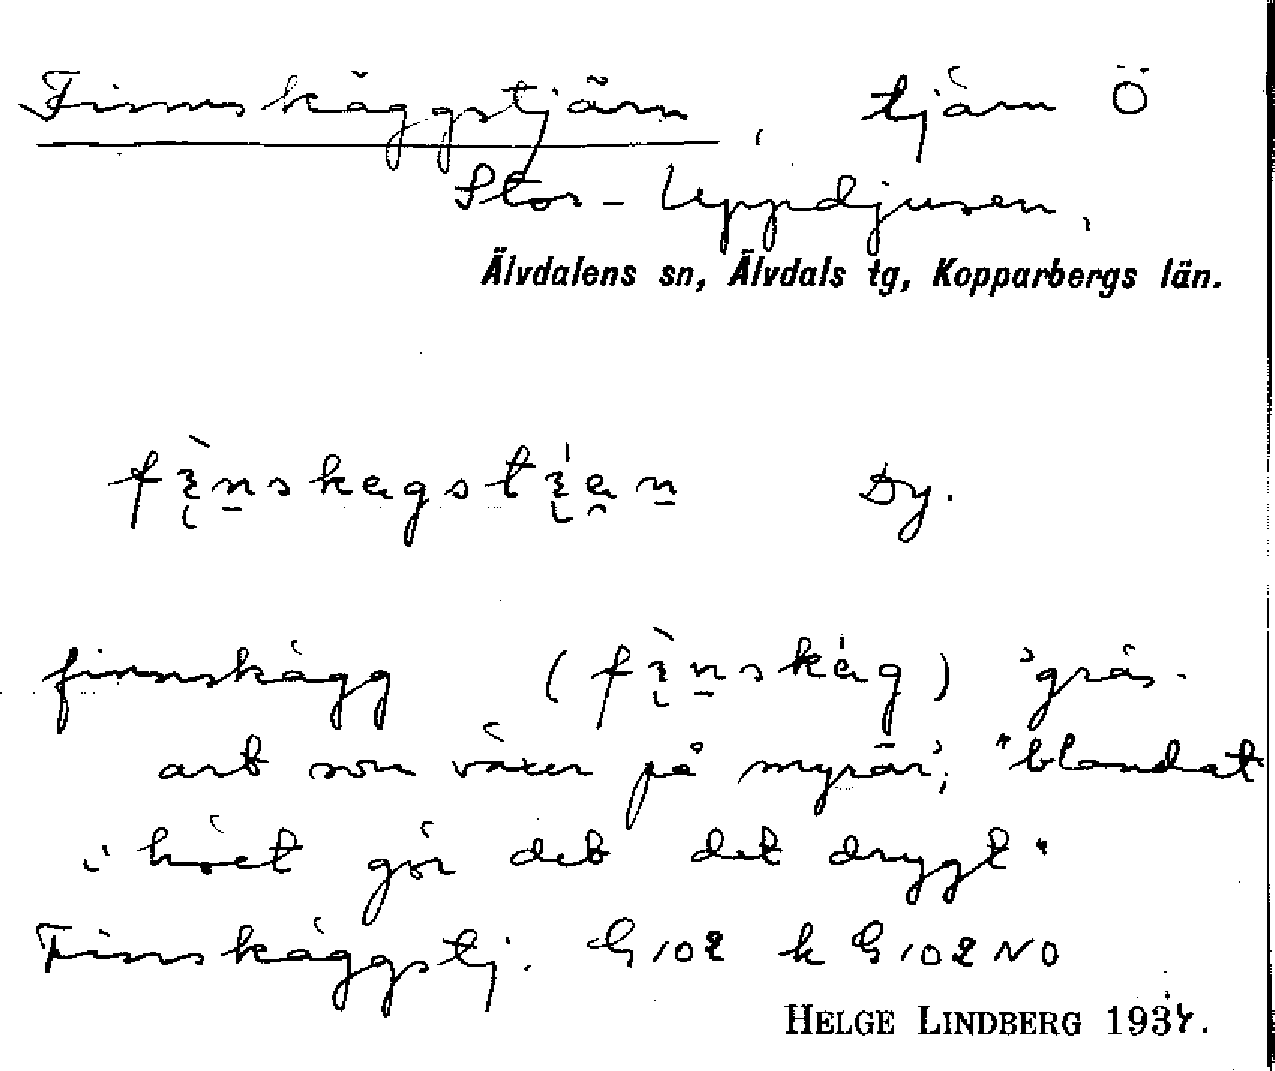 Finnskäggstjärn, tjärn Ö
Stor-Uppdjusen,
Älvdalens sn, Älvdals tg, Kopparbergs län.
Dy.
finnskägg ( ) 'gräs-
art som växer på myrar'; "blandat
i höet gör det det drygt"
Finnskäggstj. G102 k G102NO
HELGE LINDBERG 1934.